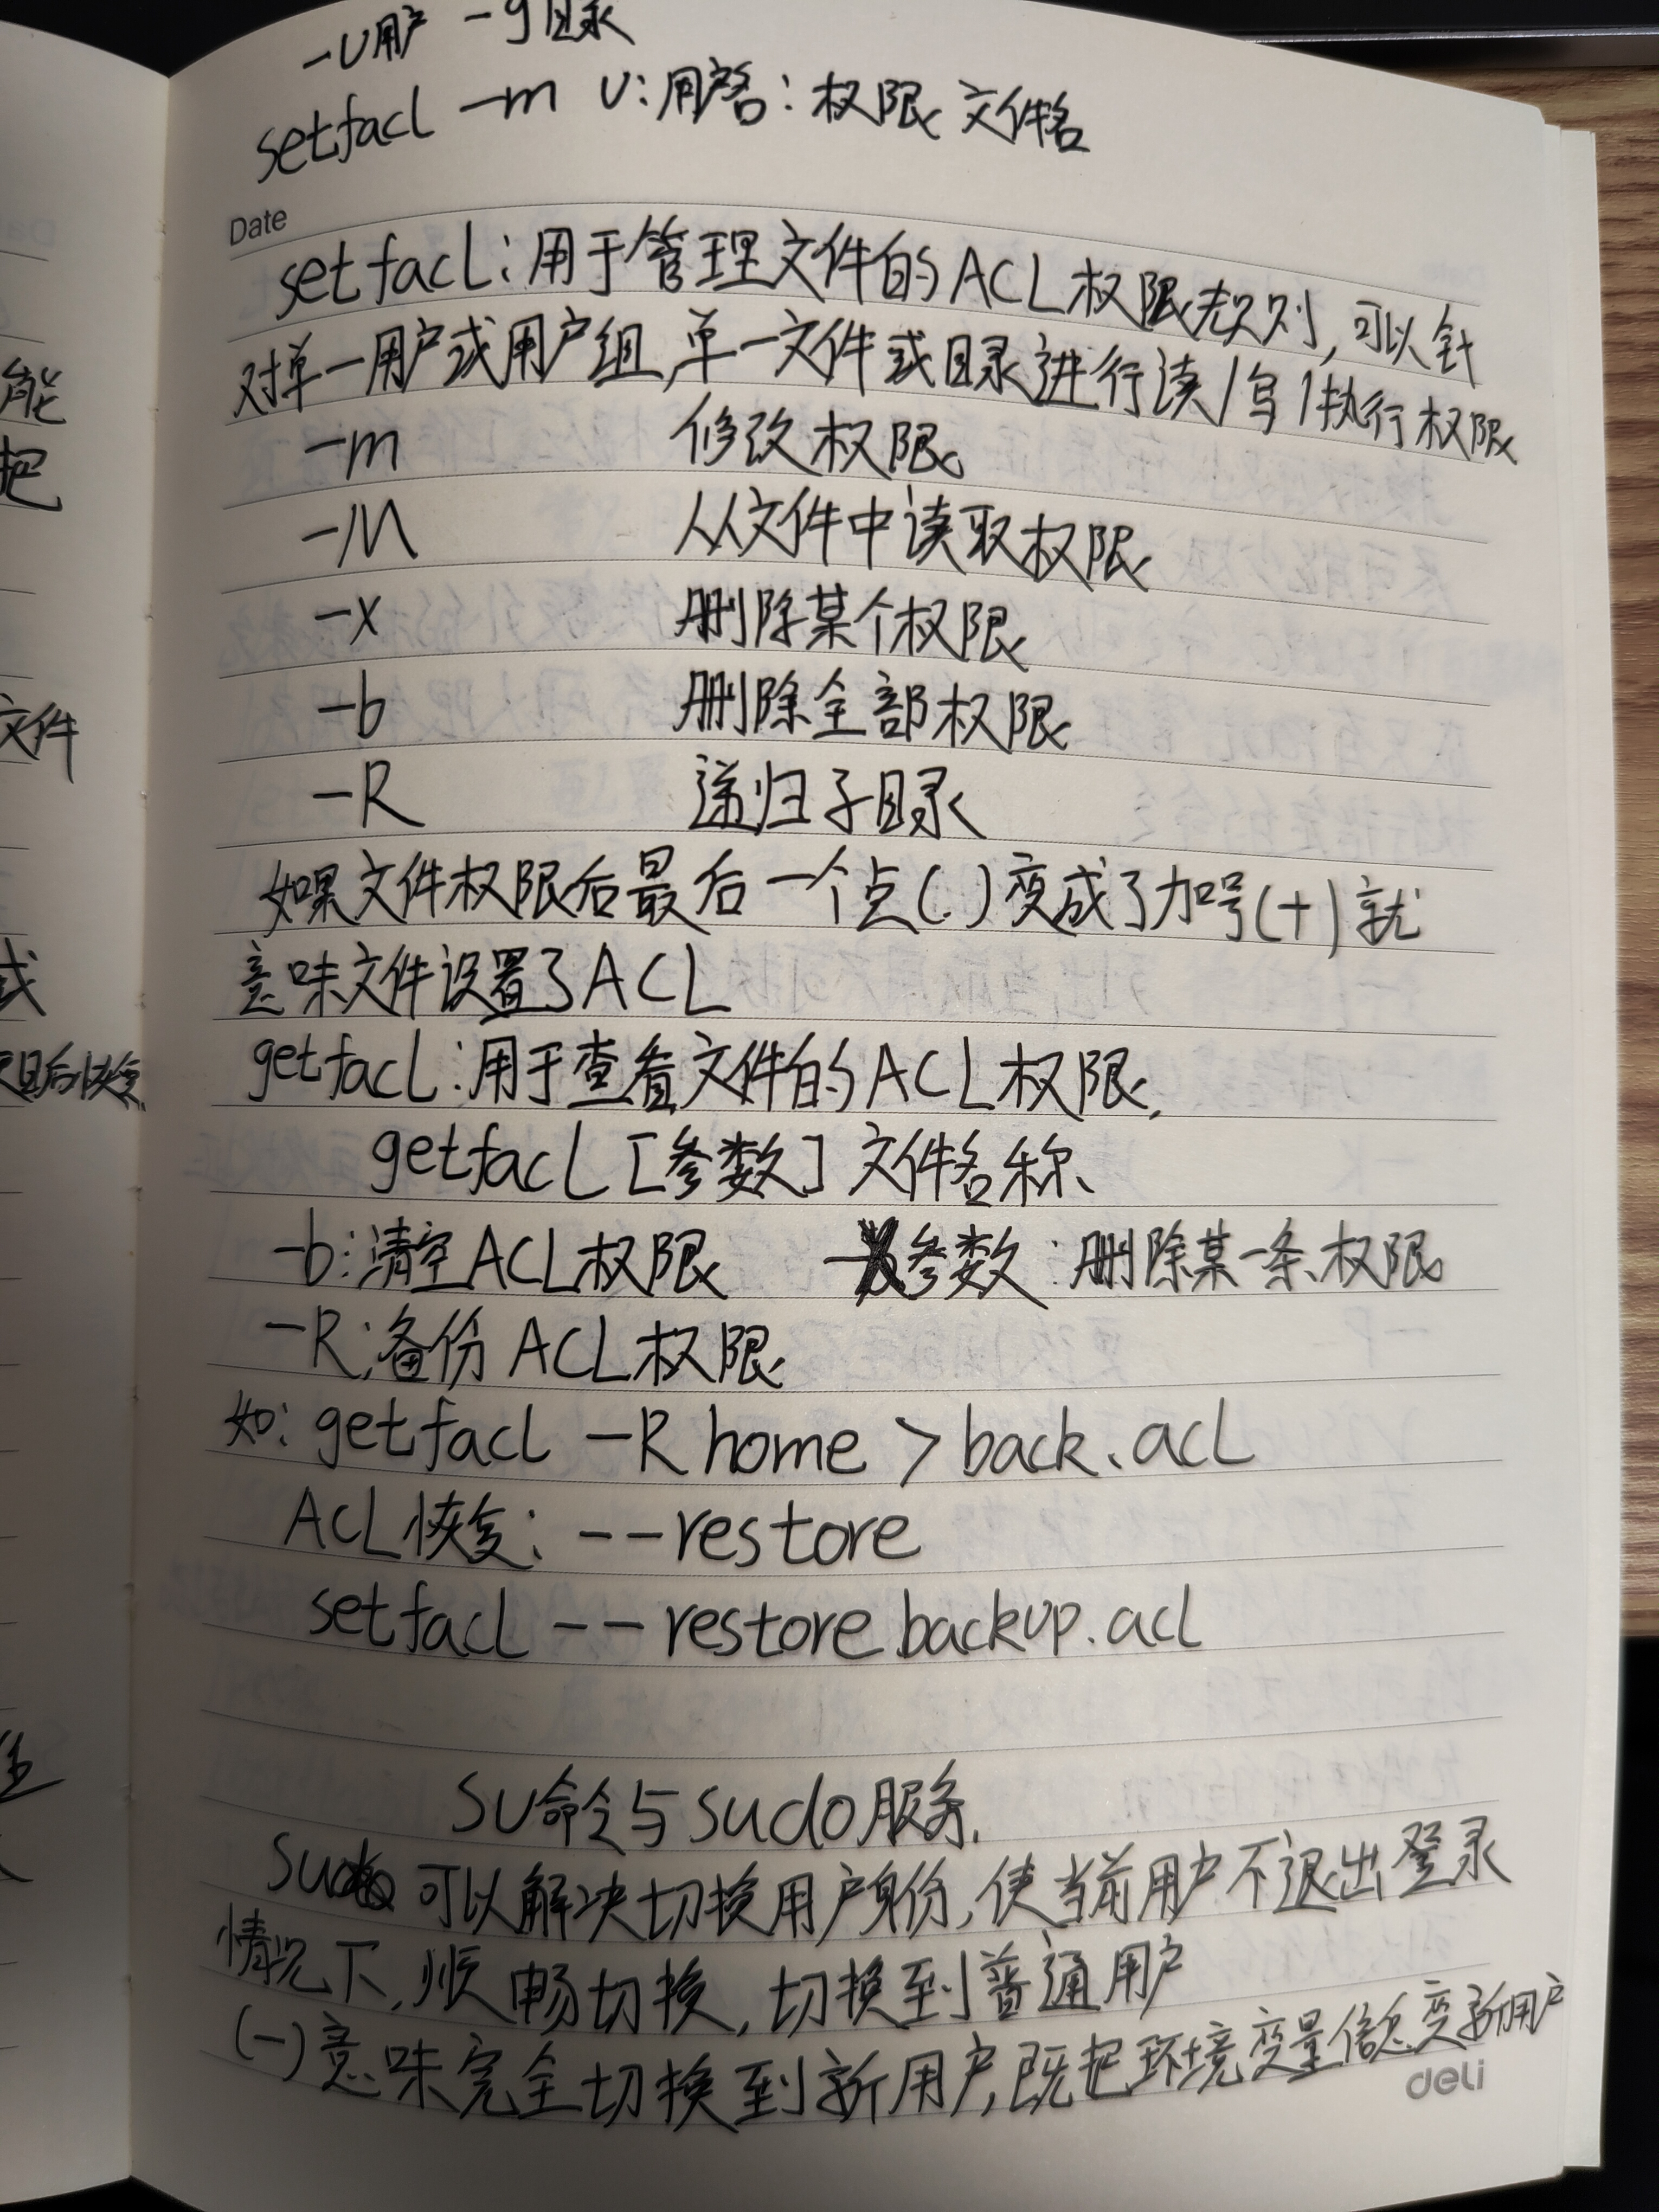 -U用户 -g目录
setfacl -m U:用户名:权限 文件名
Date
setfacl:用于管理文件的ACL权限规则,可以针
对单一用户或用户组,单一文件或目录进行读/写/执行权限
-m 修改权限
-M 从文件中读取权限
-x 删除某个权限
-b 删除全部权限
-R 递归子目录
如果文件权限后最后一个点(.)变成了加号(+)就
意味文件设置了ACL
getfacl:用于查看文件的ACL权限,
getfacl [参数] 文件名称
-b:清空ACL权限 -X参数:删除某一条权限
-R:备份ACL权限
如: getfacl -R home > back.acl
ACL恢复: --restore
setfacl --restore backup.acl
SU命令与sudo服务.
su 可以解决切换用户身份,使当前用户不退出登录
情况下,顺畅切换,切换到普通用户
(-)意味完全切换到新用户,既把环境变量信息变新用户
deli
能
把
文件
或
后恢复